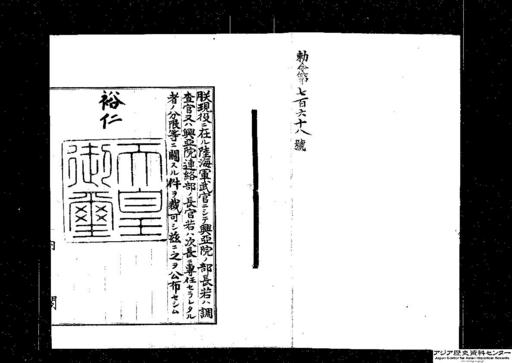 勅令第七百六十八號
朕現役ニ在ル陸海軍武官ニシテ興亞院ノ部長若ハ調
査官又ハ興亞院連絡部ノ長官若ハ次長ニ專任セラレタル
者ノ分限等ニ關スル件ヲ裁可シ茲ニ之ヲ公布セシム
裕仁
天皇
御璽
内閣
アジア歴史資料センター
Japan Center for Asian Historical Records